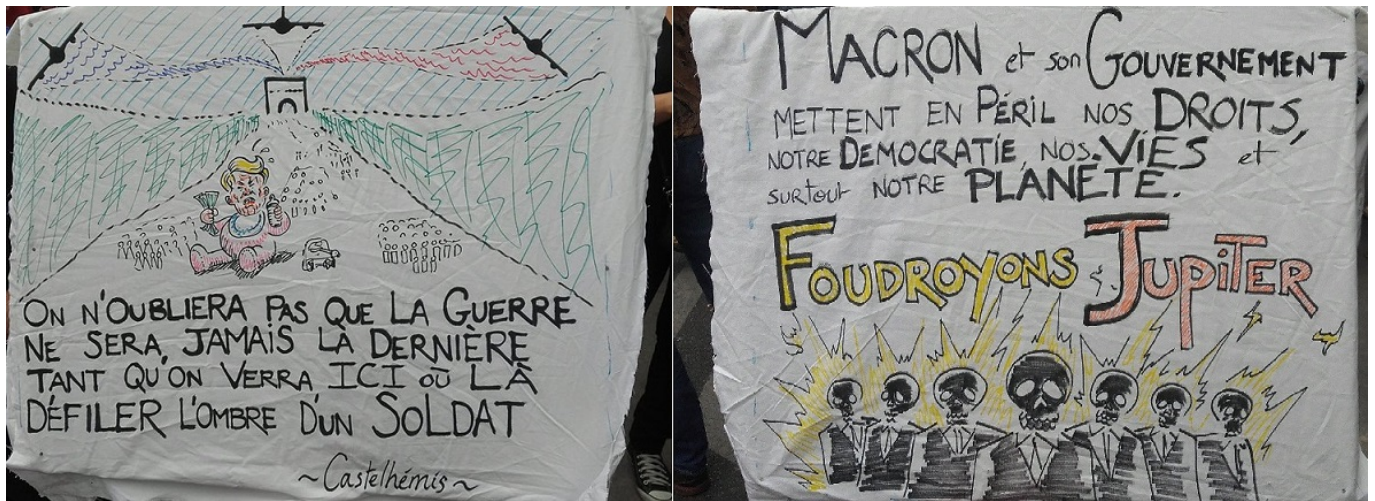 ON N'OUBLIERA PAS QUE LA GUERRE
NE SERA, JAMAIS LA DERNIÈRE
TANT QU'ON VERRA ICI OÙ LÀ
DÉFILER L'OMBRE D'UN SOLDAT
~Castelhémis~
MACRON et son GOUVERNEMENT
METTENT EN PÉRIL NOS DROITS,
NOTRE DEMOCRATIE, NOS VIES et
surtout NOTRE PLANÈTE.
FOUDROYONS JUPITER